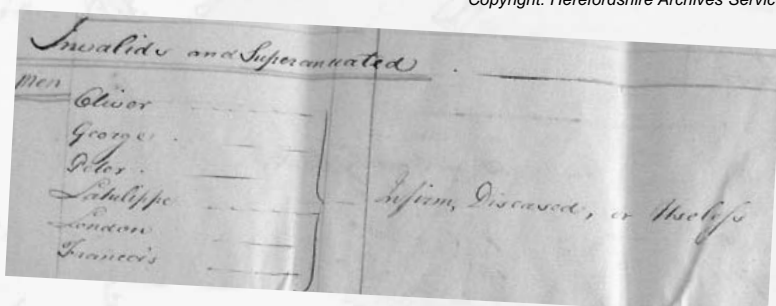 Copyright: Herefordshire Archives Servic
Invalids and Superanuated
Men
Oliver
George
Peter
Latulippe
London
Francois
Infirm, Diseased, or Useless